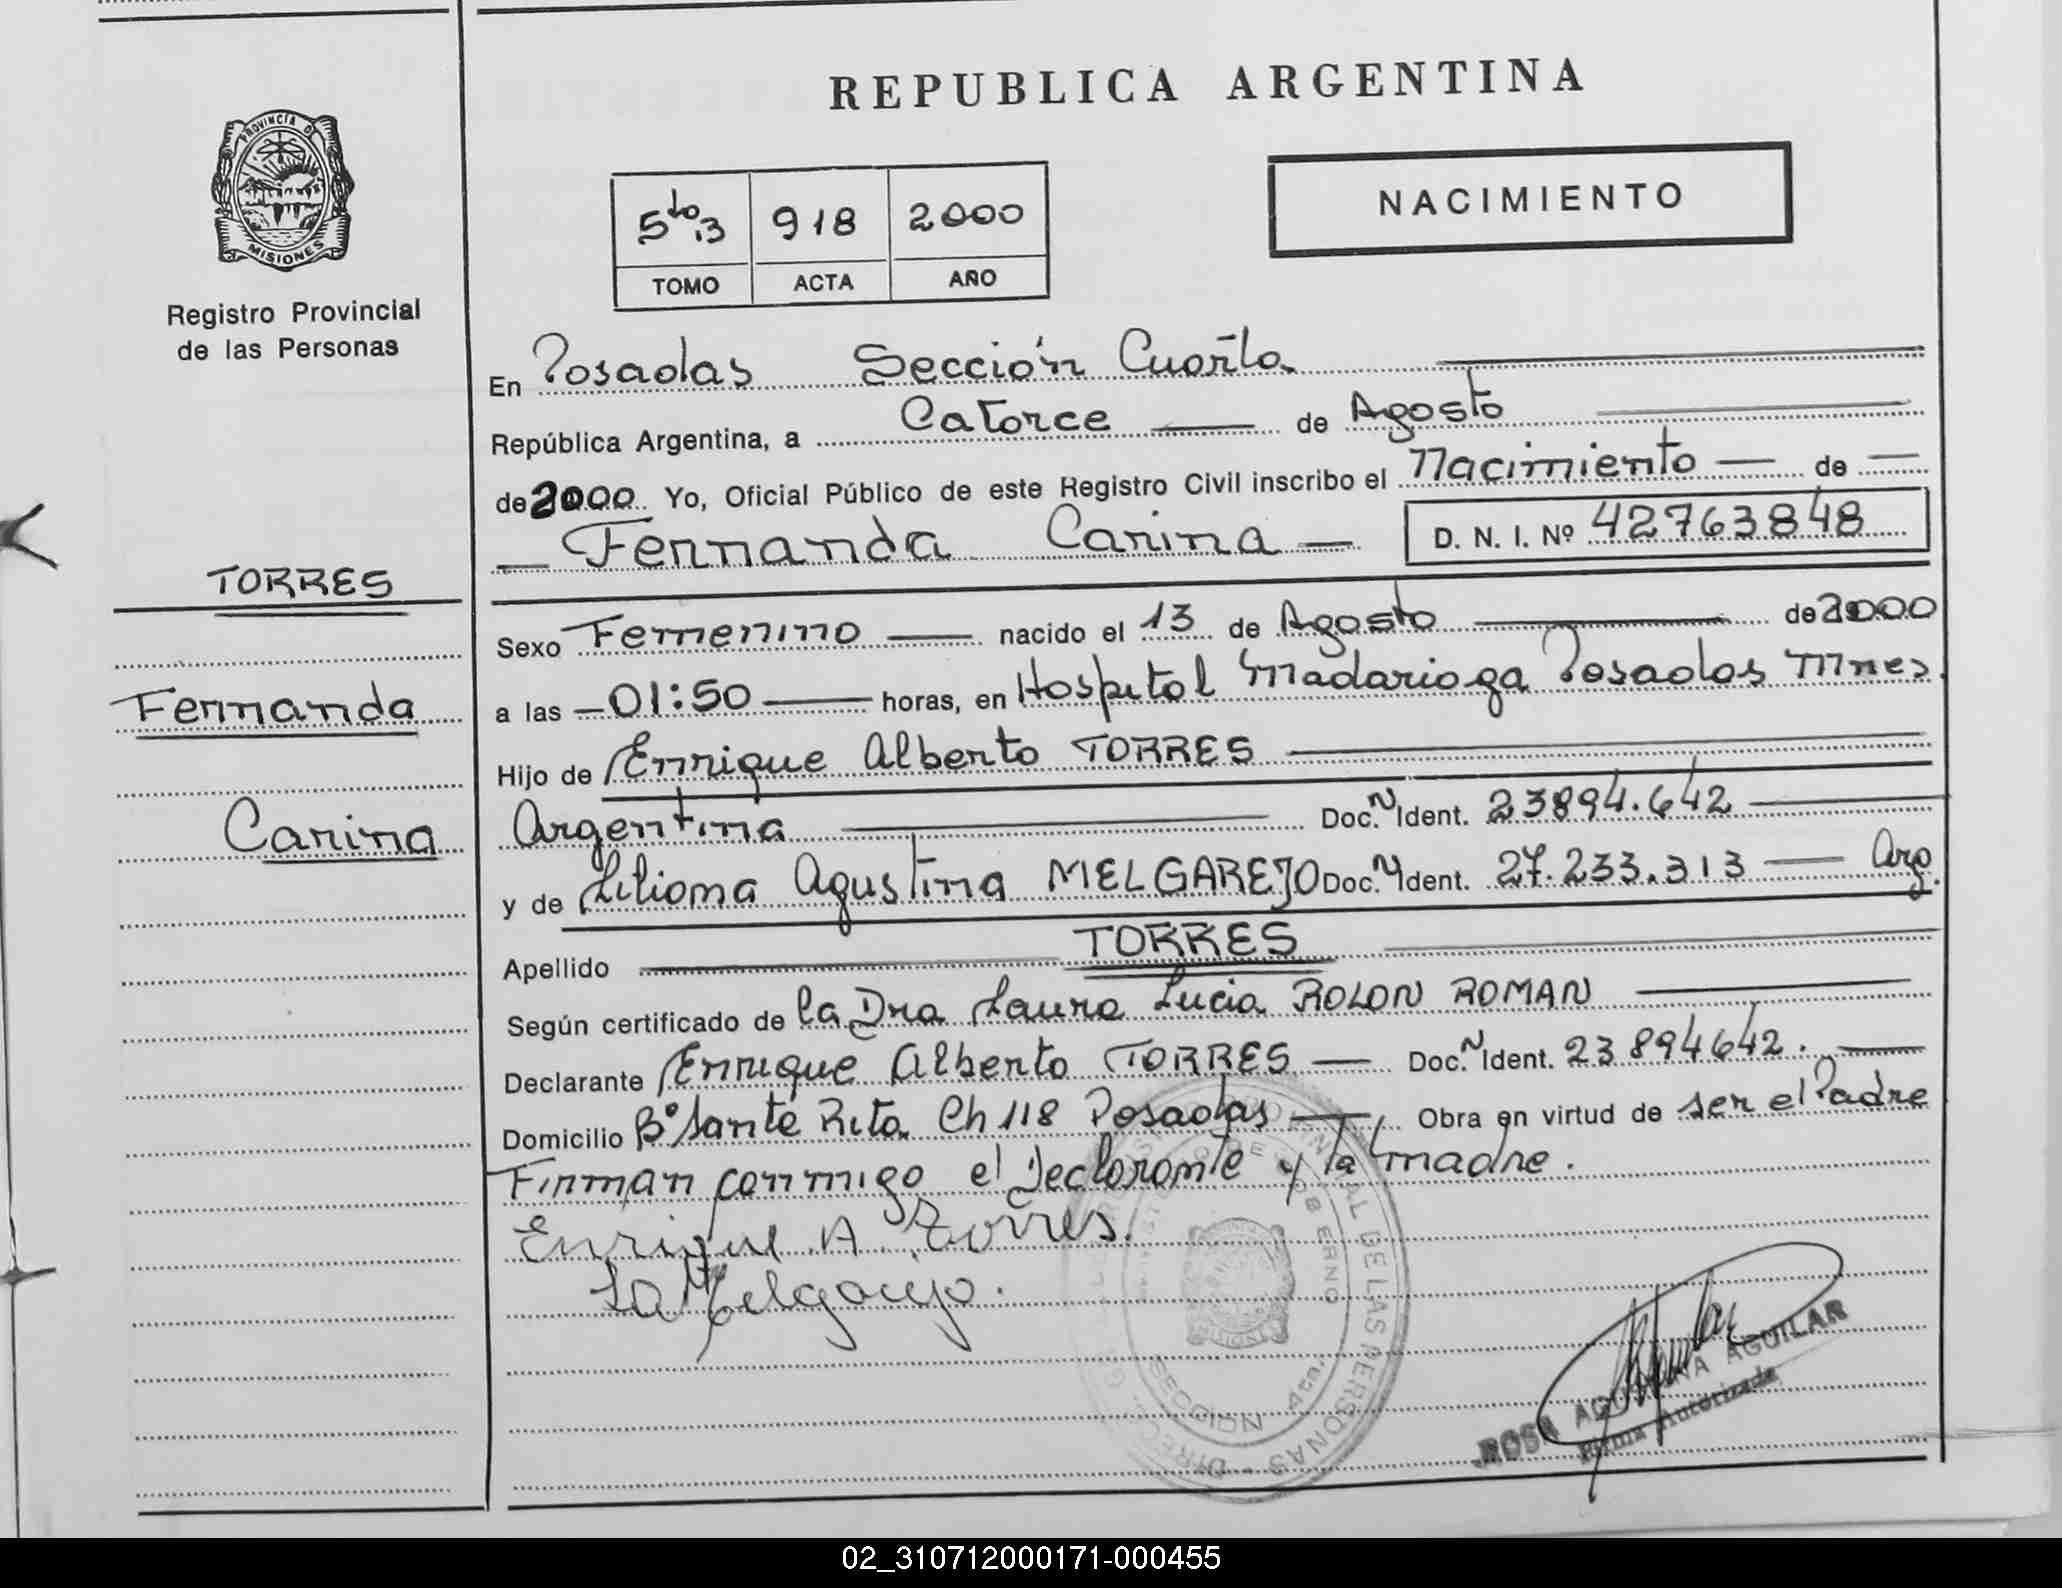 REPUBLICA ARGENTINA
PROVINCIA DE
MISIONES
Registro Provincial
de las Personas
NACIMIENTO
5to 13 918 2000
TOMO ACTA AÑO
En Posadas Sección Cuarta
República Argentina, a Catorce de Agosto
de 2000 Yo, Oficial Público de este Registro Civil inscribo el Nacimiento de
Fernanda Carina D. N. I. Nº 42763848
TORRES
Fernanda
Carina
Sexo Femenino nacido el 13 de Agosto de 2000
a las 01:50 horas, en Hospital Madariaga Posadas Mnes
Hijo de Enrique Alberto TORRES
Argentina Doc. N Ident. 23894.642
y de Liliana Agustina MELGAREJO Doc. N Ident. 27.233.313 Arg.
Apellido TORRES
Según certificado de la Dra Laura Lucia ROLON ROMAN
Declarante Enrique Alberto TORRES Doc. N Ident. 23894642.
Domicilio Bº Santa Rita Ch 118 Posadas Obra en virtud de ser el Padre
Firman conmigo el Declarante y la madre.
Enrique A Torres.
LAMelgarejo.
DE LAS PERSONAS
SECCION 4ta.
ROSA AGUSTINA AGUILAR
Firma Autorizada
02_310712000171-000455